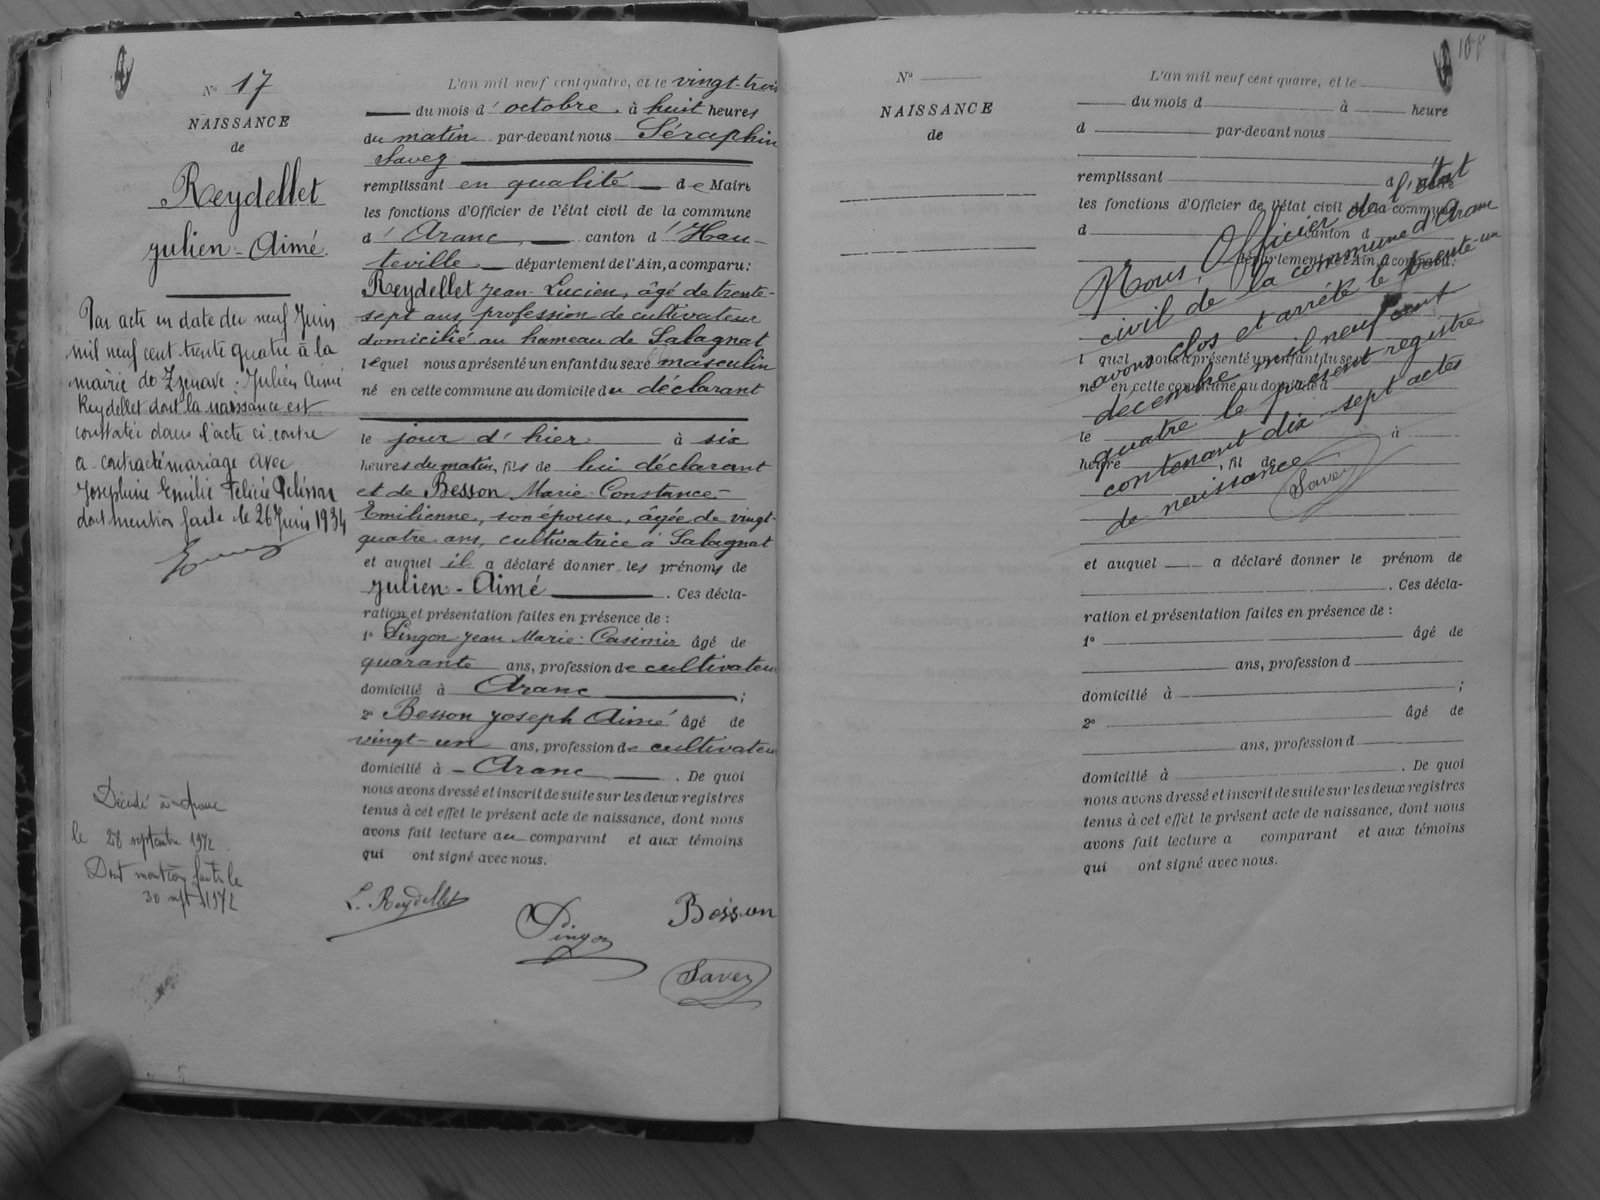 N° 17
NAISSANCE
de
Reydellet
Julien-Aimé
Par acte en date du neuf Juin
mil neuf cent trente quatre à la
mairie de Izenave : Julien Aimé
Reydellet dont la naissance est
constatée dans l'acte ci contre
a contracté mariage avec
Joséphine Emilie Félicie
dont mention faite le 26 Juin 1934
Décédé à Aranc
le 28 septembre 1972
Dont mention faite le
30 sept 1972
L'an mil neuf cent quatre, et le vingt-trois
du mois d'octobre, à huit heures
du matin par-devant nous Séraphin
Savey
remplissant en qualité de Maire
les fonctions d'Officier de l'état civil de la commune
d'Aranc, canton d'Hau-
teville département de l'Ain, a comparu:
Reydellet Jean-Lucien, âgé de trente-
sept ans, profession de cultivateur
domicilié au hameau de Salagnat
lequel nous a présenté un enfant du sexe masculin
né en cette commune au domicile du déclarant
le jour d'hier à six
heures du matin, fils de lui déclarant
et de Besson Marie-Constance-
Emilienne, son épouse, âgée de vingt-
quatre ans, cultivatrice à Salagnat
et auquel il a déclaré donner les prénoms de
Julien-Aimé. Ces décla-
ration et présentation faites en présence de :
1° Pingon Jean Marie-Casimir âgé de
quarante ans, profession de cultivateur
domicilié à Aranc ;
2° Besson Joseph Aimé âgé de
vingt-un ans, profession de cultivateur
domicilié à Aranc. De quoi
nous avons dressé et inscrit de suite sur les deux registres
tenus à cet effet le présent acte de naissance, dont nous
avons fait lecture au comparant et aux témoins
qui ont signé avec nous.
L. Reydellet
Pingon
Besson
Savey
108
N°
NAISSANCE
de
L'an mil neuf cent quatre, et le
du mois d à heure
d par-devant nous
remplissant d Maire
les fonctions d'Officier de l'état civil de la commune
d canton d
département de l'Ain, a comparu:
l quel nous a présenté un enfant du sexe
né en cette commune au domicile d
le à
heure , fil de
Nous, Officier de l'état
civil de la commune d'Aranc
avons clos et arrêté le trente-un
décembre mil neuf cent
quatre le présent registre
contenant dix-sept actes
de naissance
Savey
et auquel a déclaré donner le prénom de
. Ces décla-
ration et présentation faites en présence de :
1° âgé de
ans, profession d
domicilié à ;
2° âgé de
ans, profession d
domicilié à . De quoi
nous avons dressé et inscrit de suite sur les deux registres
tenus à cet effet le présent acte de naissance, dont nous
avons fait lecture a comparant et aux témoins
qui ont signé avec nous.